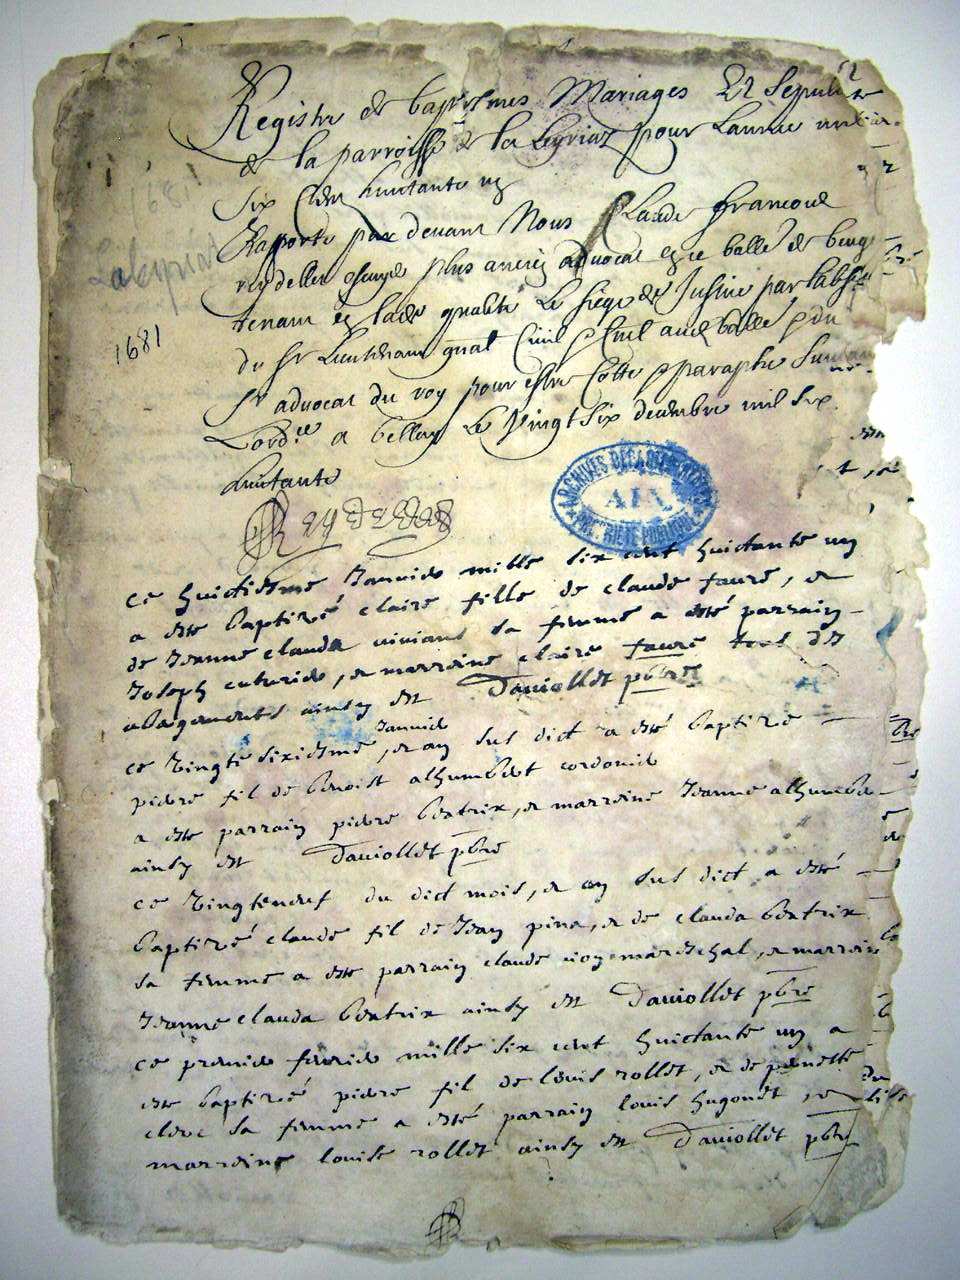 Registre de baptesmes Mariages Et Sepultu
de la parroisse de la Leyriat pour Lannee mil
six Cens huictante un
Rapporte par devant Nous Claude Francois
Reydellet plus ancien advocat balle de beug
tenant lade qualite Le siege de Justice par labs
du Sr Lieutenant gnal Civil
Sr advocat du roy pour estre Cotte paraphe suivant
Lordce a belley Le Vingt Six decembre mil six
huitante
Reydellet
1681
ARCHIVES DEPARTEMENTALES
AIN
PROPRIETE PUBLIQUE
ce huictiesme Janvier mille six cent huictante un
a este baptizé claire fille de claude faure, et
de Jeanne clauda viviant sa femme a esté parrain
Joseph cuturier, et marreine claire faure tous des
abergements ainsy est Daviollet pbre
Janvier
ce vingte sixiesme, et an sus dict a esté baptizé
pierre fil de benoist alhumbert cordonier
a este parrain pierre beatrix, et marreine Jeanne alhumbe
ainsy est Daviollet pbre
ce vingteneuf du dict mois, et an sus dict a esté
baptizé claude fil de Jean pina, et de clauda beatrix
sa femme a este parrain claude mareschal, et marrein
Jeanne clauda beatrix ainsy est Daviollet pbre
ce premier fevrier mille six cent huictante un a
este baptizé pierre fil de louis rollet, et de penette
clerc sa femme a esté parrain louis hugonet, et
marreine louise rollet ainsy est Daviollet pbre